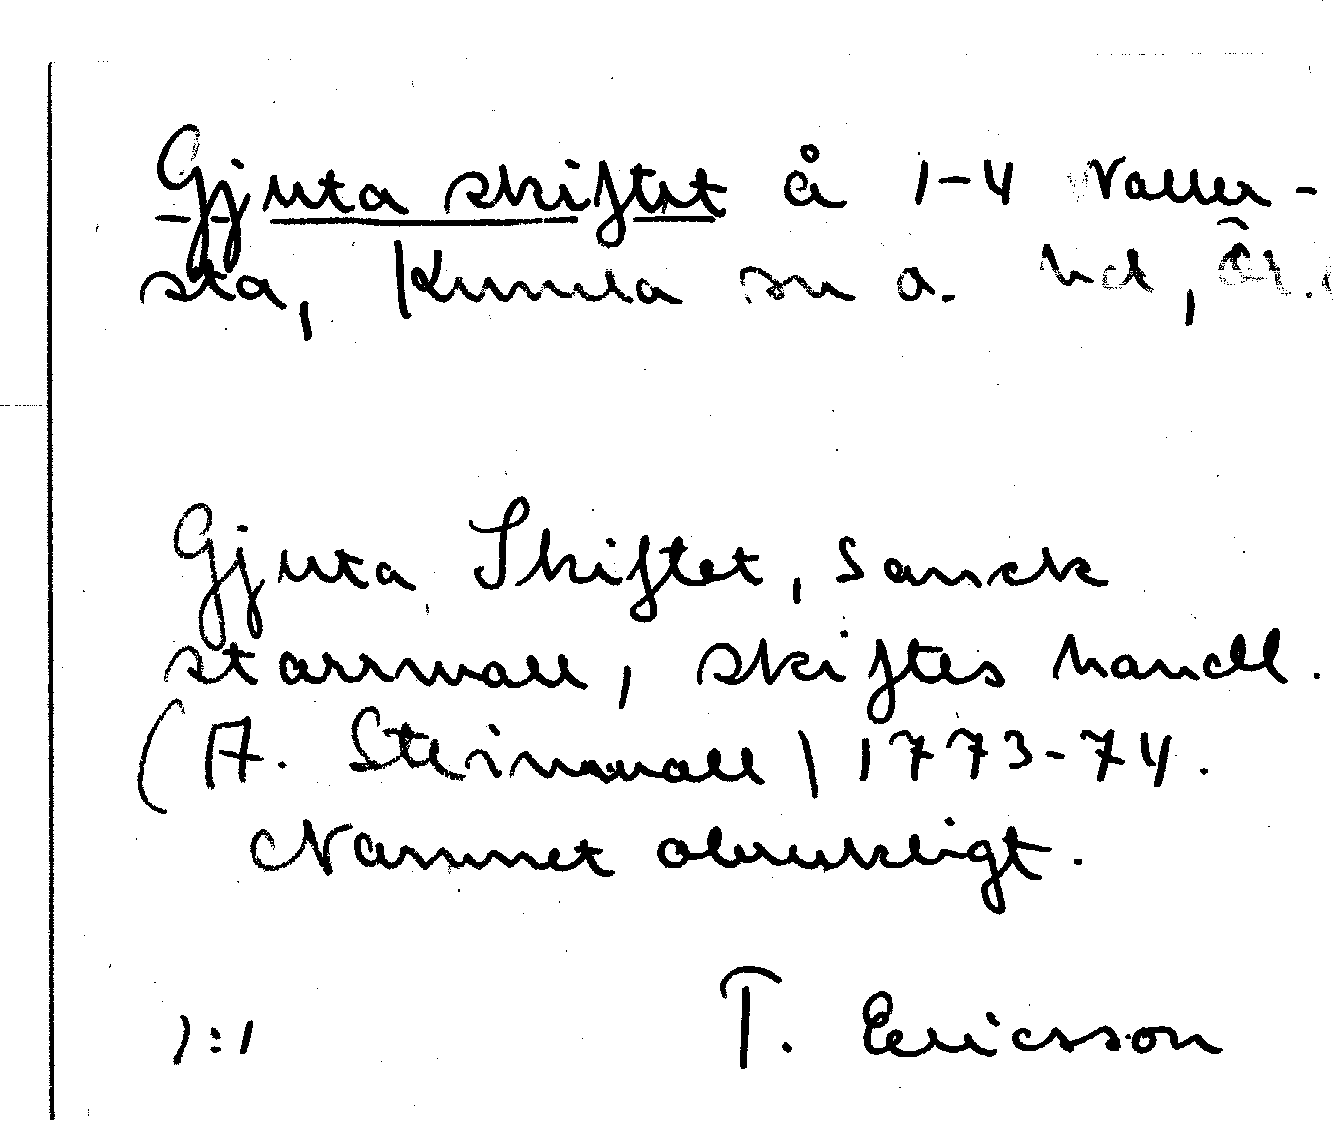 Gjuta skiftet å 1-4 Valler-
sta, Kumla sn o. hd,
Gjuta Skiftet, Sanck
starrwall, skiftes handl.
(A. Steinwall) 1773-74.
Namnet obrukligt.
):1 T. Ericsson